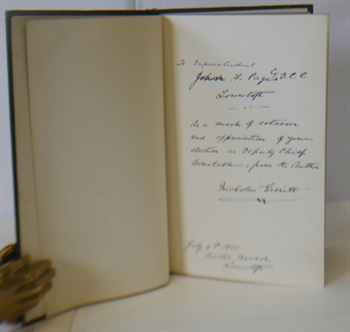 To Superintendent
F. Page D.C.C
Lowestoft
As a mark of esteem
and appreciation of your
election as Deputy Chief
Constable, from the Author
Nicholas Everitt
July
Lowestoft